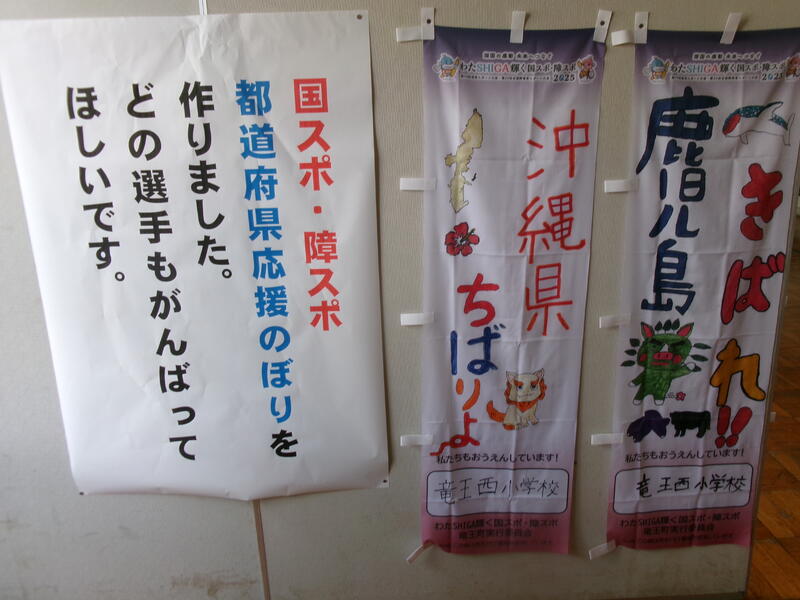 国スポ・障スポ
都道府県応援のぼりを
作りました。
どの選手もがんばって
ほしいです。
わたSHIGA輝く国スポ・障スポ
2025
沖縄県
ちばりよ
私たちもおうえんしています!
竜王西小学校
わたSHIGA輝く国スポ・障スポ
竜王町実行委員会
わたSHIGA輝く国スポ・障スポ
2025
きばれ!!
鹿児島
私たちもおうえんしています!
竜王西小学校
わたSHIGA輝く国スポ・障スポ
竜王町実行委員会